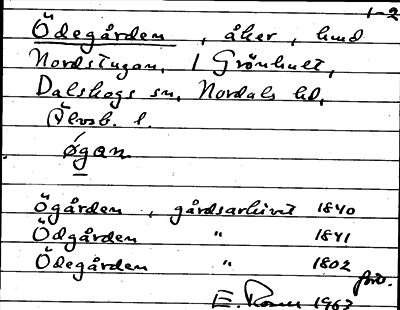 1-2
Ödegården , åker , hmd
Nordstugan, 1 Grönhult,
Dalskogs sn, Nordals hd,
Älvsb. l.
øgan
Ögården , gårdsarkivet 1840
Ödgården " 1841
Ödegården " 1802
E. 1963